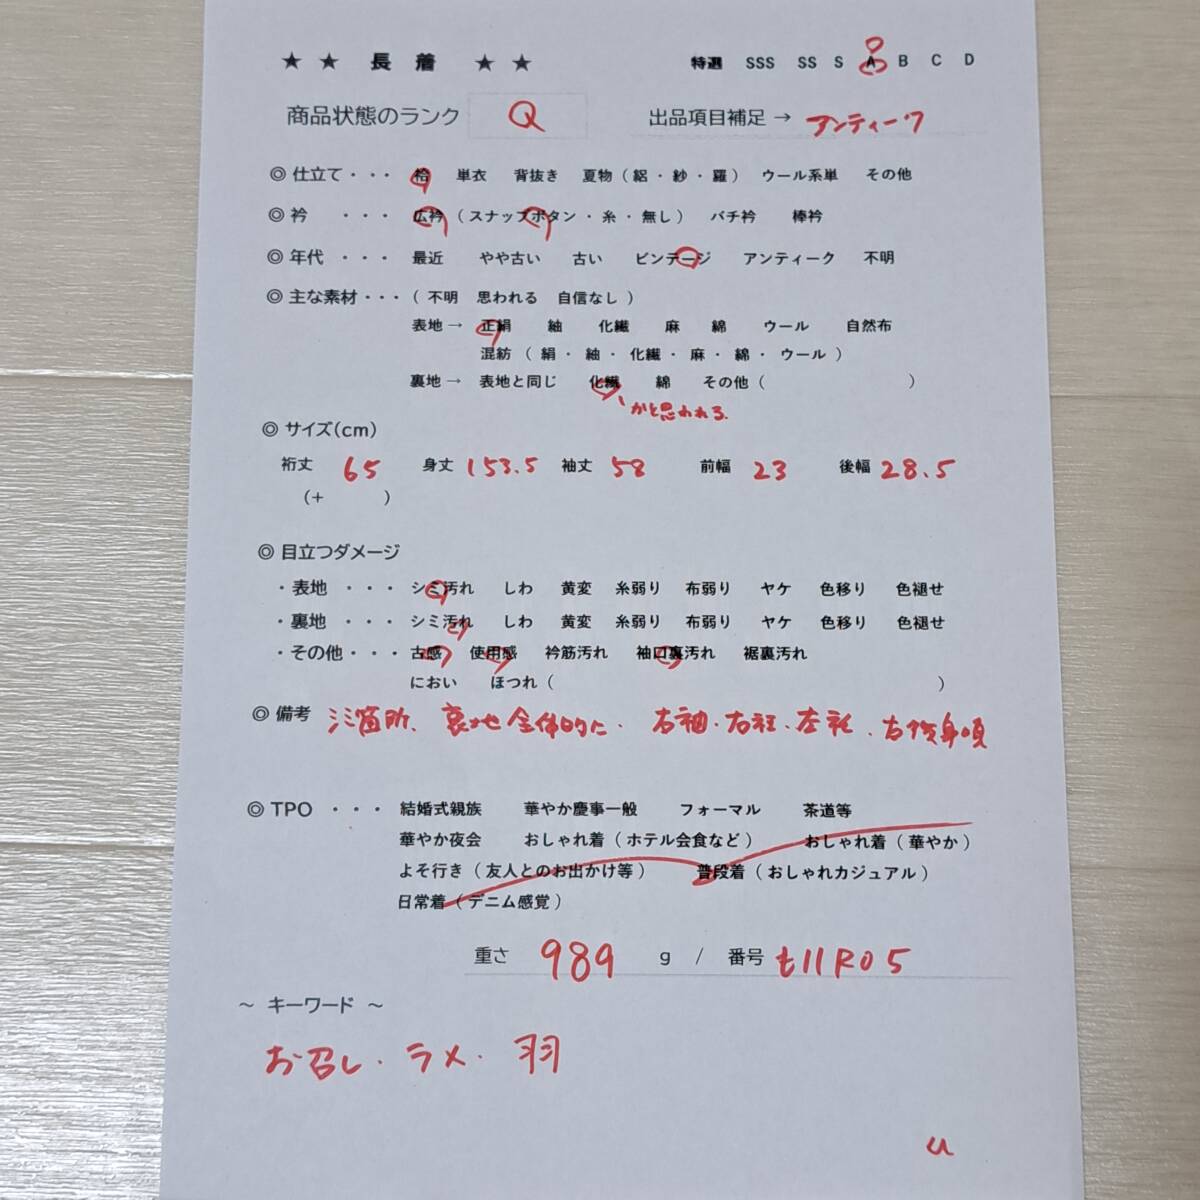 ★ ★ 長 着 ★ ★ 特選 SSS SS S A B C D
商品状態のランク Q 出品項目補足 → アンティーク
◎ 仕立て・・・ 袷 単衣 背抜き 夏物 ( 絽 ・ 紗 ・ 羅 ) ウール系単 その他
◎ 衿 ・・・ 広衿 ( スナップボタン ・ 糸 ・ 無し ) バチ衿 棒衿
◎ 年代 ・・・ 最近 やや古い 古い ビンテージ アンティーク 不明
◎ 主な素材・・・ ( 不明 思われる 自信なし )
表地 → 正絹 紬 化繊 麻 綿 ウール 自然布
混紡 ( 絹 ・ 紬 ・ 化繊 ・ 麻 ・ 綿 ・ ウール )
裏地 → 表地と同じ 化繊 綿 その他 ( )
かと思われる
◎ サイズ(cm)
裄丈 65 身丈 153.5 袖丈 58 前幅 23 後幅 28.5
(+ )
◎ 目立つダメージ
・表地 ・・・ シミ汚れ しわ 黄変 糸弱り 布弱り ヤケ 色移り 色褪せ
・裏地 ・・・ シミ汚れ しわ 黄変 糸弱り 布弱り ヤケ 色移り 色褪せ
・その他・・・ 古感 使用感 衿筋汚れ 袖口裏汚れ 裾裏汚れ
におい ほつれ ( )
◎ 備考 シミ箇所、裏地全体的に、右袖・右衽・左衽、右後身頃
◎ TPO ・・・ 結婚式親族 華やか慶事一般 フォーマル 茶道等
華やか夜会 おしゃれ着 ( ホテル会食など ) おしゃれ着 ( 華やか )
よそ行き ( 友人とのお出かけ等 ) 普段着 ( おしゃれカジュアル )
日常着 ( デニム感覚 )
重さ 989 g / 番号 t11R05
～ キーワード ～
お召し・ラメ・羽